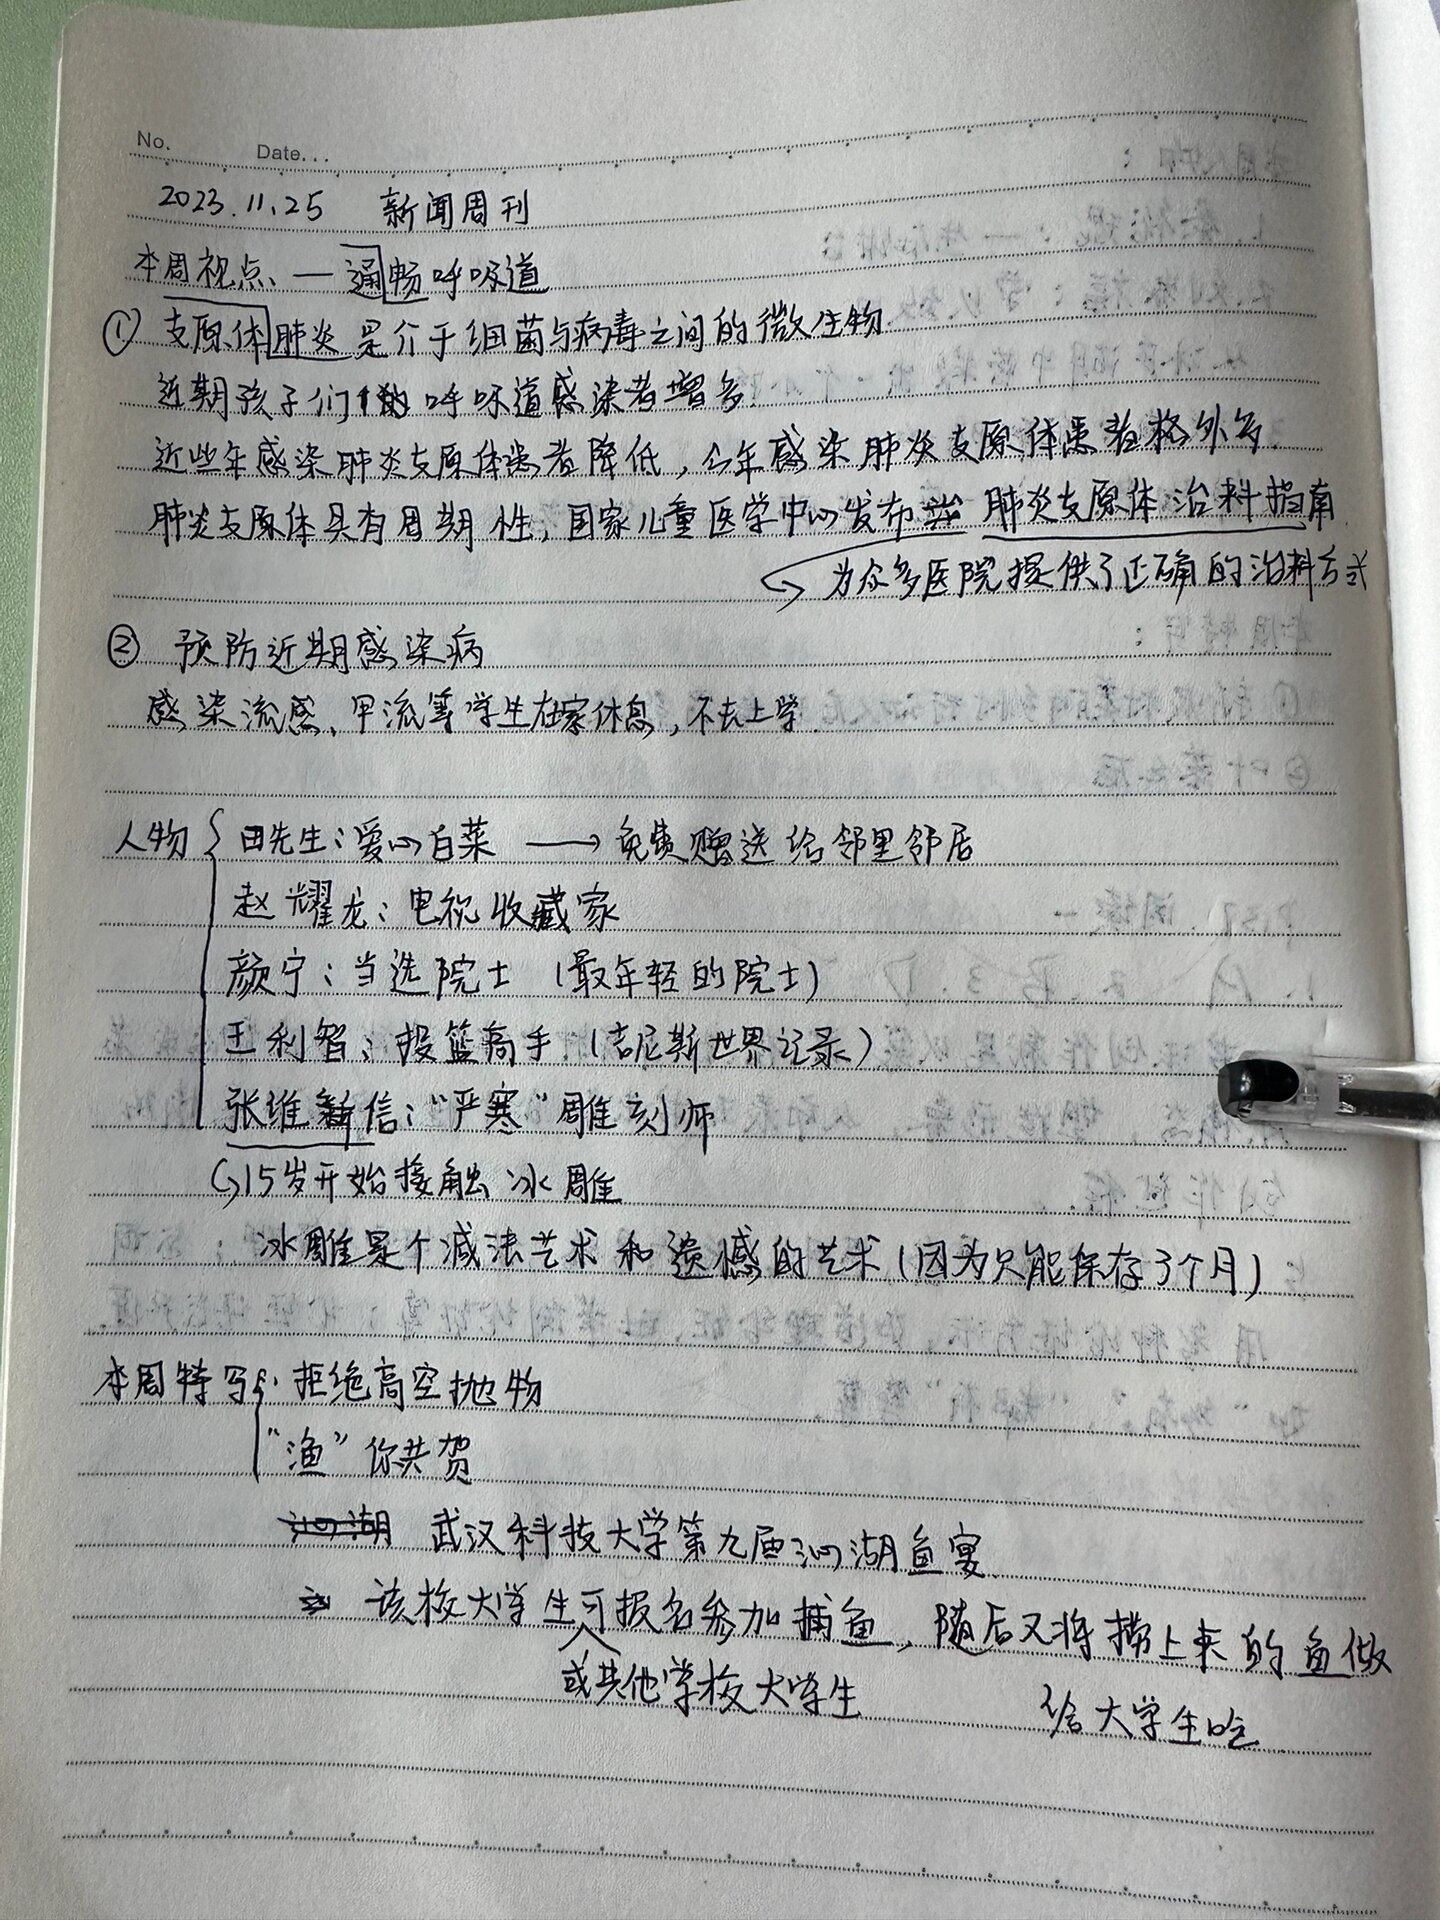 No.
Date...
2023.11.25 新闻周刊
本周视点 — 通畅呼吸道
① 支原体肺炎是介于细菌与病毒之间的微生物
近期孩子们的呼吸道感染者增多
近些年感染肺炎支原体患者降低，今年感染肺炎支原体患者格外多.
肺炎支原体具有周期性，国家儿童医学中心发布 肺炎支原体治料指南
为众多医院提供了正确的治料方式
② 预防近期感染病
感染流感、甲流等学生在家休息，不去上学.
人物 田先生：爱心白菜 → 免费赠送给邻里邻居
赵耀龙：电视收藏家
颜宁：当选院士（最年轻的院士）
王利智：投篮高手（吉尼斯世界记录）
张维信：“严寒”雕刻师
15岁开始接触冰雕
冰雕是个减法艺术和遗憾的艺术（因为只能保存3个月）
本周特写：拒绝高空抛物
“渔”你共贺
武汉科技大学第九届沁湖鱼宴
该校大学生可报名参加捕鱼，随后又将捞上来的鱼做
或其他学校大学生
给大学生吃